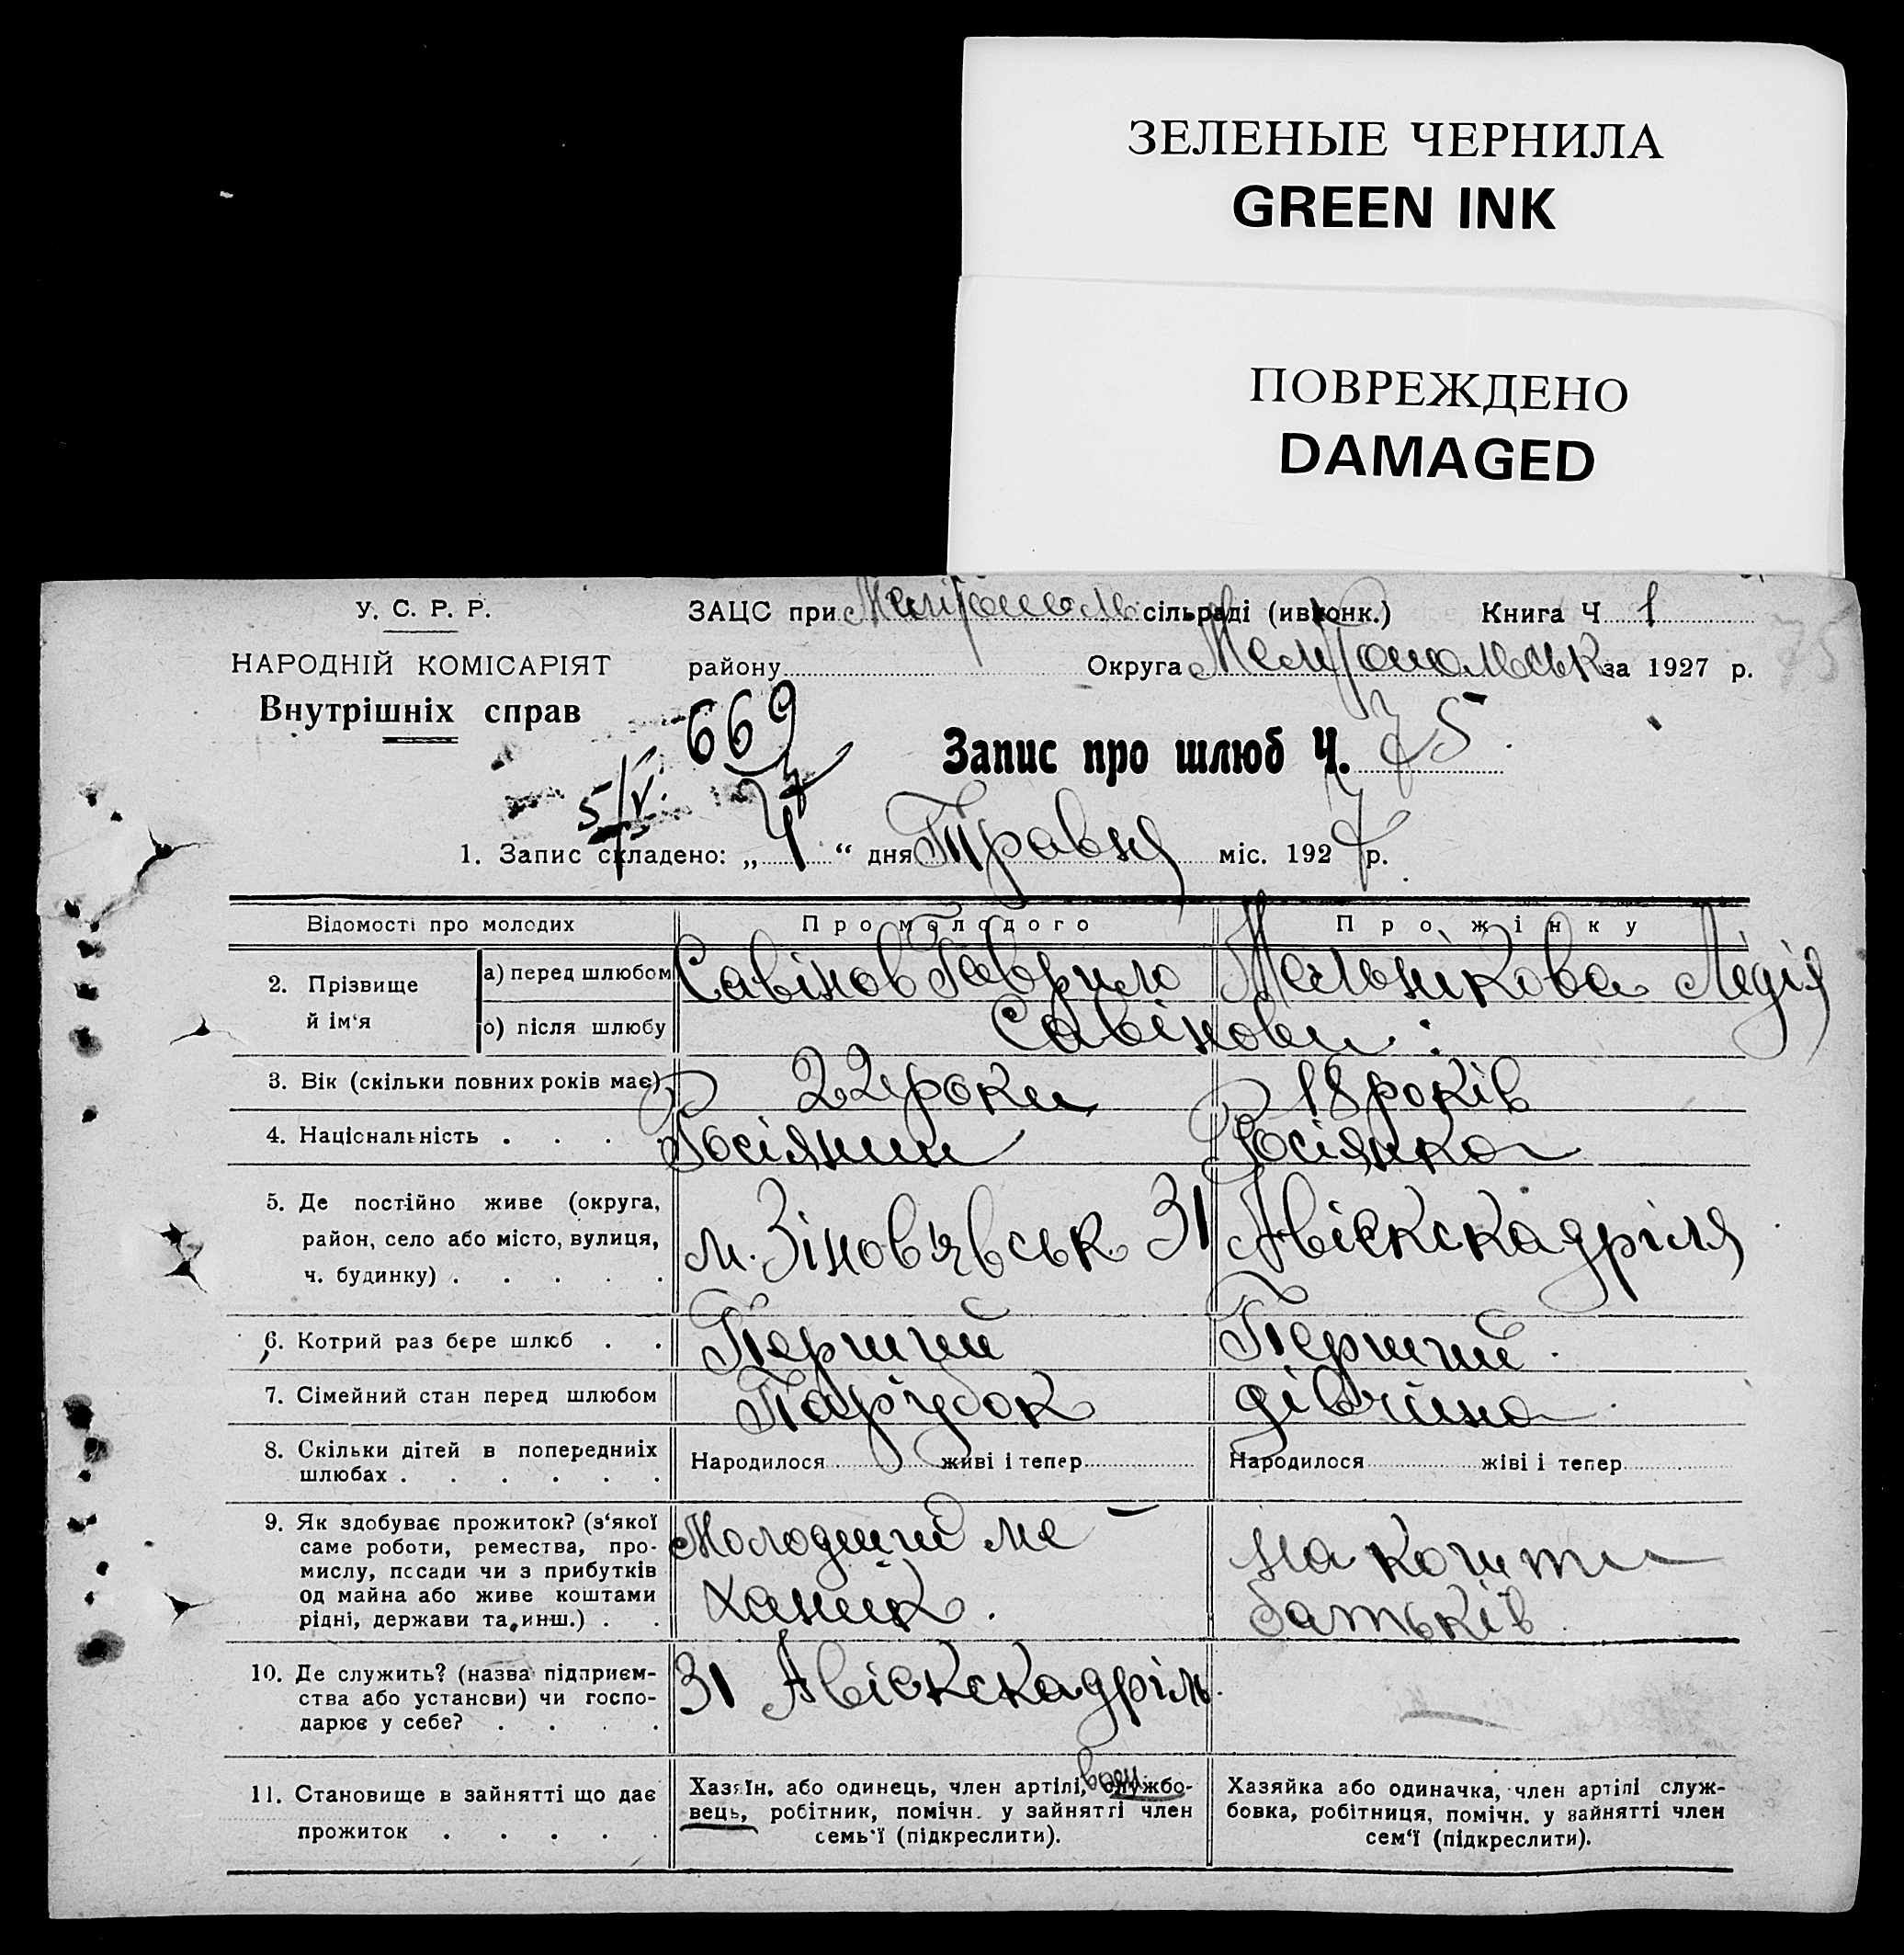 ЗЕЛЕНЫЕ ЧЕРНИЛА
GREEN INK
ПОВРЕЖДЕНО
DAMAGED
У. С. Р. Р.
НАРОДНІЙ КОМІСАРІЯТ
Внутрішніх справ
ЗАЦС при Мелітополь сільраді (ивконк.) Книга Ч 1
району Округа Мелітопольськ за 1927 р.
75
669
Запис про шлюб Ч. 75.
5/V.
1. Запис складено: „ 4 “ дня Травня міс. 1927 р.
Відомості про молодих Про молодого Про жінку
2. Прізвище й ім‘я
а) перед шлюбом Савінов Гаврило Мельнікова Лідія
о) після шлюбу Савінови
3. Вік (скільки повних років має) 22 роки 18 років
4. Національність . . . . Росіянин Росіянка
5. Де постійно живе (округа,
район, село або місто, вулиця,
ч. будинку) . . . . .
м. Зінов'явськ 31 Авіескадріля
6. Котрий раз бере шлюб . . Перший Перший.
7. Сімейний стан перед шлюбом Парубок дівчина
8. Скільки дітей в попередниіх
шлюбах . . . . . .
Народилося живі і тепер Народилося жіві і тепер
9. Як здобуває прожиток? (з‘якої
саме роботи, ремества, про-
мислу, посади чи з прибутків
од майна або живе коштами
рідні, держави та инш.) . .
Молодший ме
ханик.
на кошти
батьків
10. Де служить? (назва підприєм-
ства або установи) чи госпо-
дарює у себе? . . . .
31 Авіескадріль.
11. Становище в зайнятті що дає
прожиток . . . . .
Хазяїн, або одинець, член артілі, службо-
вець, робітник, помічн. у зайнятті член
семь‘ї (підкреслити).
Хазяйка або одиначка, член артілі служ-
бовка, робітниця, помічн. у зайнятті член
сем‘ї (підкреслити).